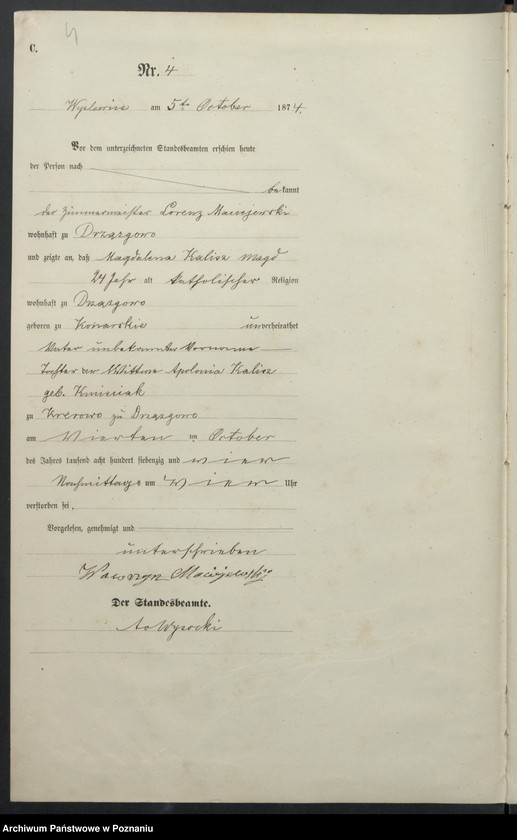 4
C.
Nr. 4
am 5ten October 1874.
Vor dem unterzeichneten Standesbeamten erschien heute
der Person nach
bekannt
der Zimmermeister Lorenz Maciejewski
wohnhaft zu Drzązgowo
und zeigte an, daß Magdalena Kalisz Magd
24 Jahr alt katholischer Religion
wohnhaft zu Drzązgowo
geboren zu Konarskie unverheirathet
Vater unbekannter Vorname
Tochter der Wittwe Apolonia Kalisz
geb.
zu Krerowo zu Drzązgowo
am Vierten im October
des Jahres tausend acht hundert siebenzig und vier
Nachmittags um Uhr
verstorben sei.
Vorgelesen, genehmigt und
unterschrieben
Wawrzyn Maciejewski
Der Standesbeamte.
Wysocki
Archiwum Państwowe w Poznaniu